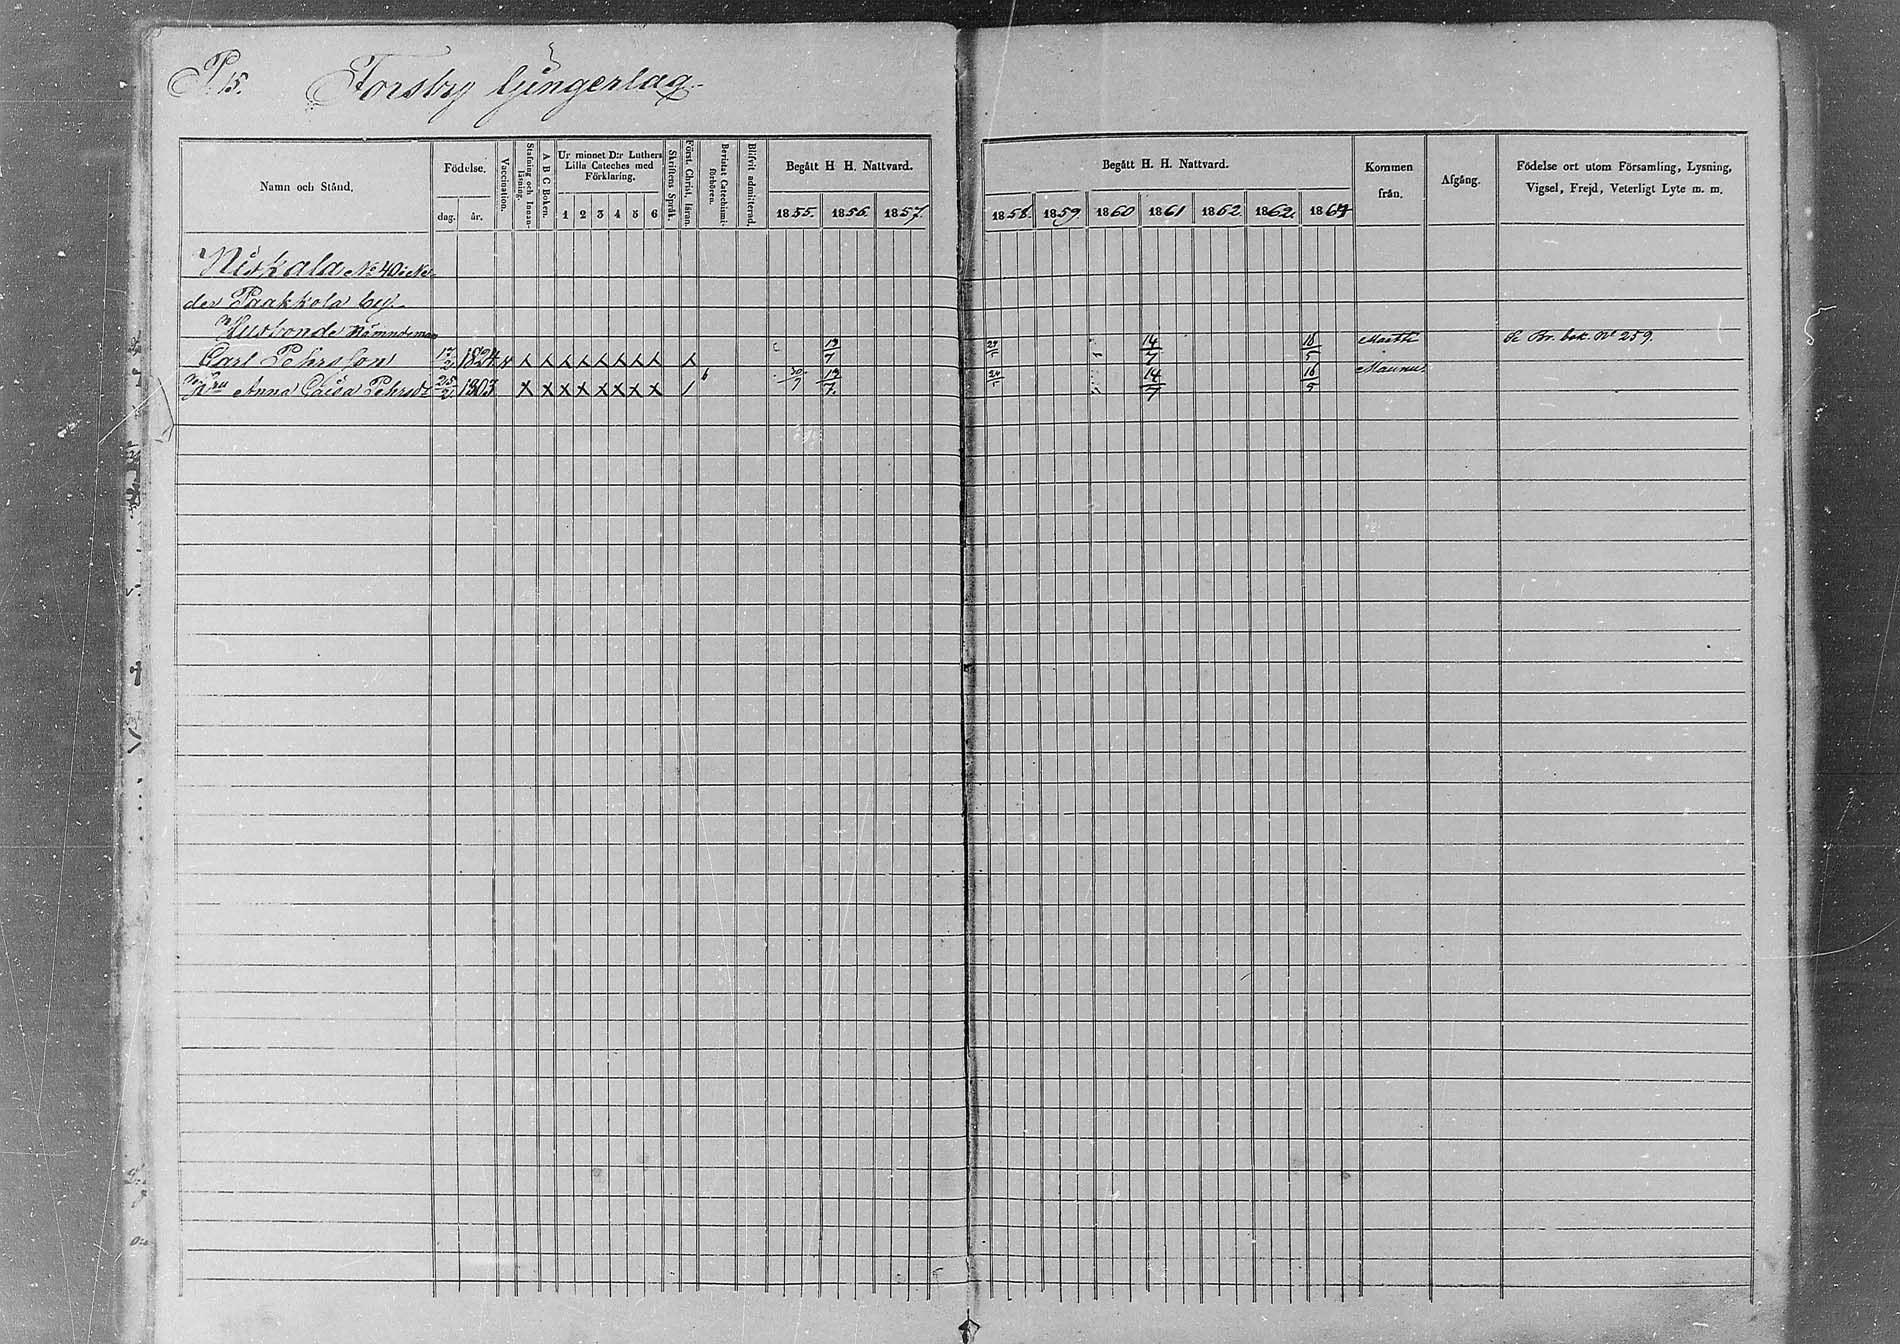 P. 15. Forsby ljungerlag.
Namn och Stånd.
Födelse.
dag. år.
Vaccination.
Stafning och Innan-läsning.
A B C Boken.
Ur minnet D:r Luthers Lilla Cateches med Förklaring.
1 2 3 4 5 6
Skriftens Språk.
Först. Christ. läran.
Bevistat Catechismi-förhören.
Blifvit admitterad.
Begått H H. Nattvard.
1855. 1856. 1857.
Begått H. H. Nattvard.
1858. 1859 1860 1861 1862 1862 1864
Kommen från.
Afgång.
Födelse ort utom Församling, Lysning,
Vigsel, Frejd, Veterligt Lyte m. m.
Niskala No 40 i Ne-
der Paakkola by.
Husbonde Nämndeman
Carl Pehrsson 17/2 1824 v x x x x x x x x x 13/7 29/5 14/7 16/5 Martti Se Br. bok. No 259.
hu Anna Caisa Pehrsdr 25/2 1803 x x x x x x x x / 30/9 13/7. 24/5 14/7 16/5 Maunu